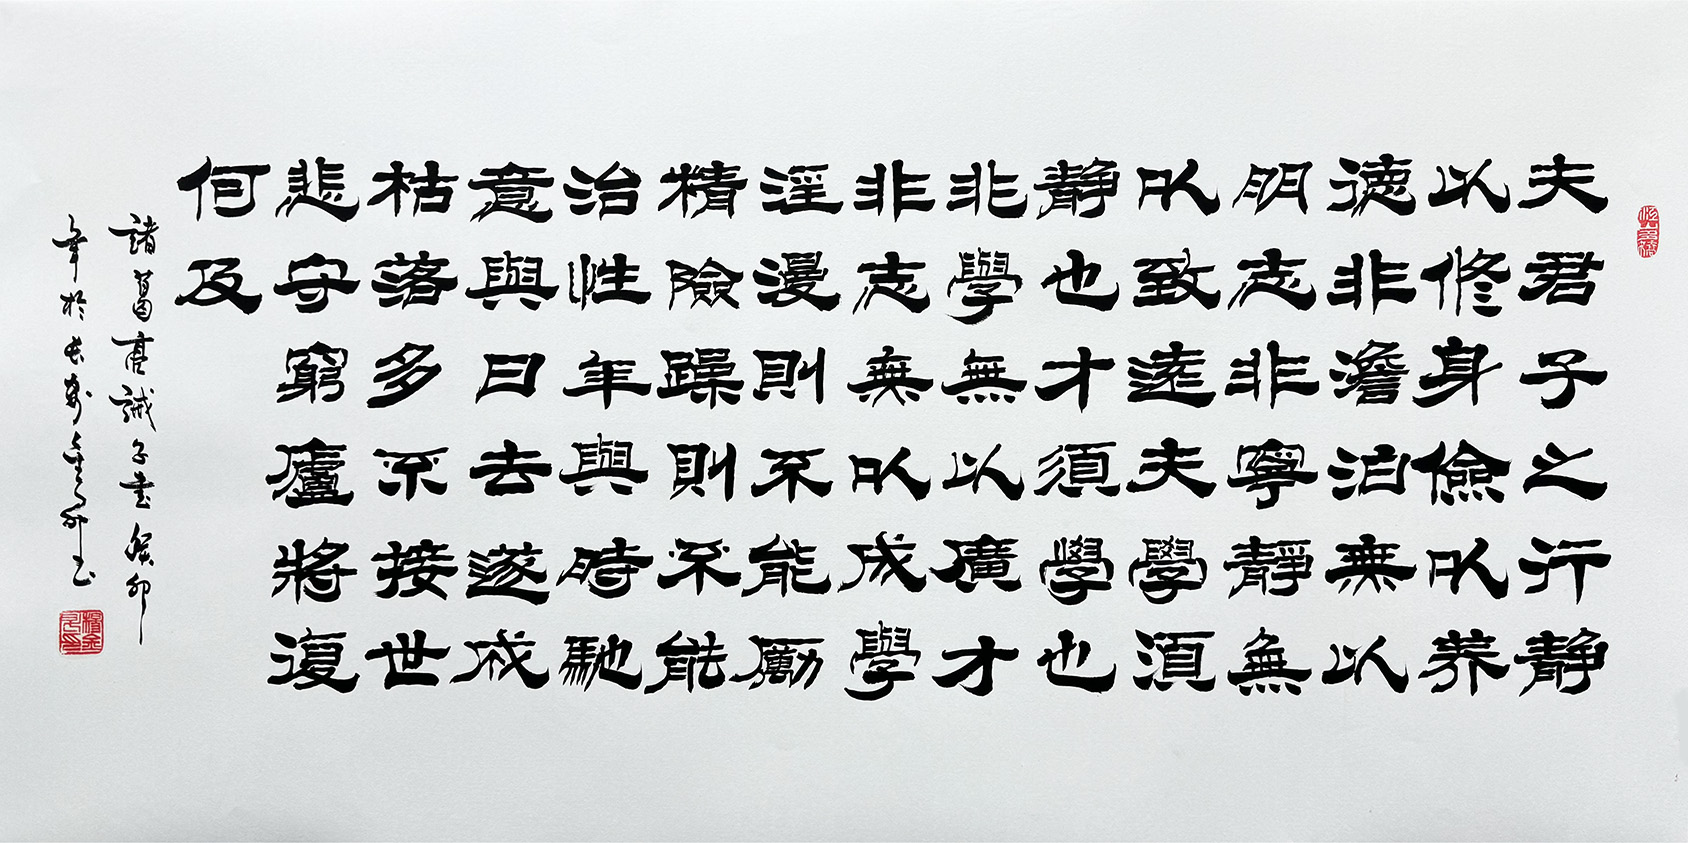 夫君子之行静
以修身儉以养
德非澹泊無以
明志非寧静無
以致遠夫學須
静也才須學也
非學無以廣才
非志無以成學
淫漫則不能勵
精險躁則不能
治性年與時馳
意與日去遂成
枯落多不接世
悲守窮廬將復
何及
諸葛亮誡子書癸卯
年於長寿